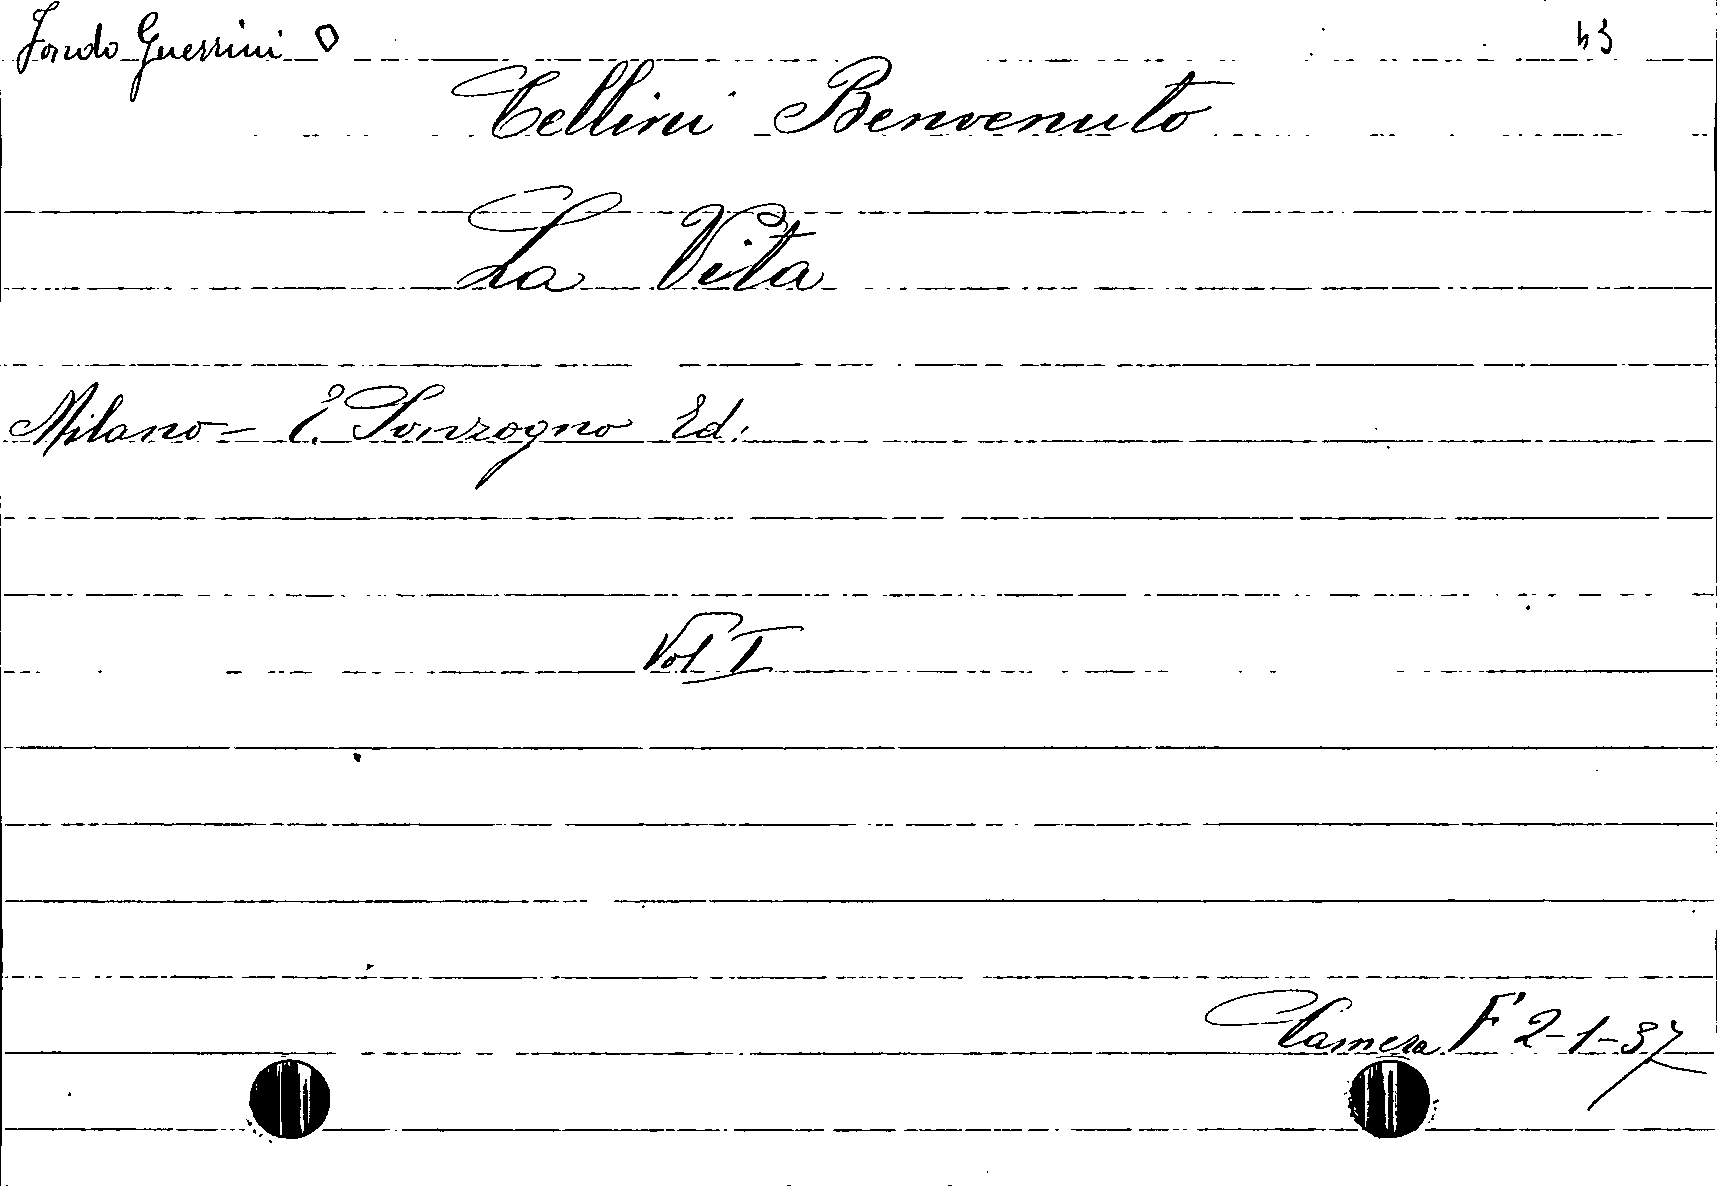 Fondo Guerrini O
43
Cellini Benvenuto
La Vita
Milano - E. Sonzogno Ed.
Vol I
Camera F 2-1-37